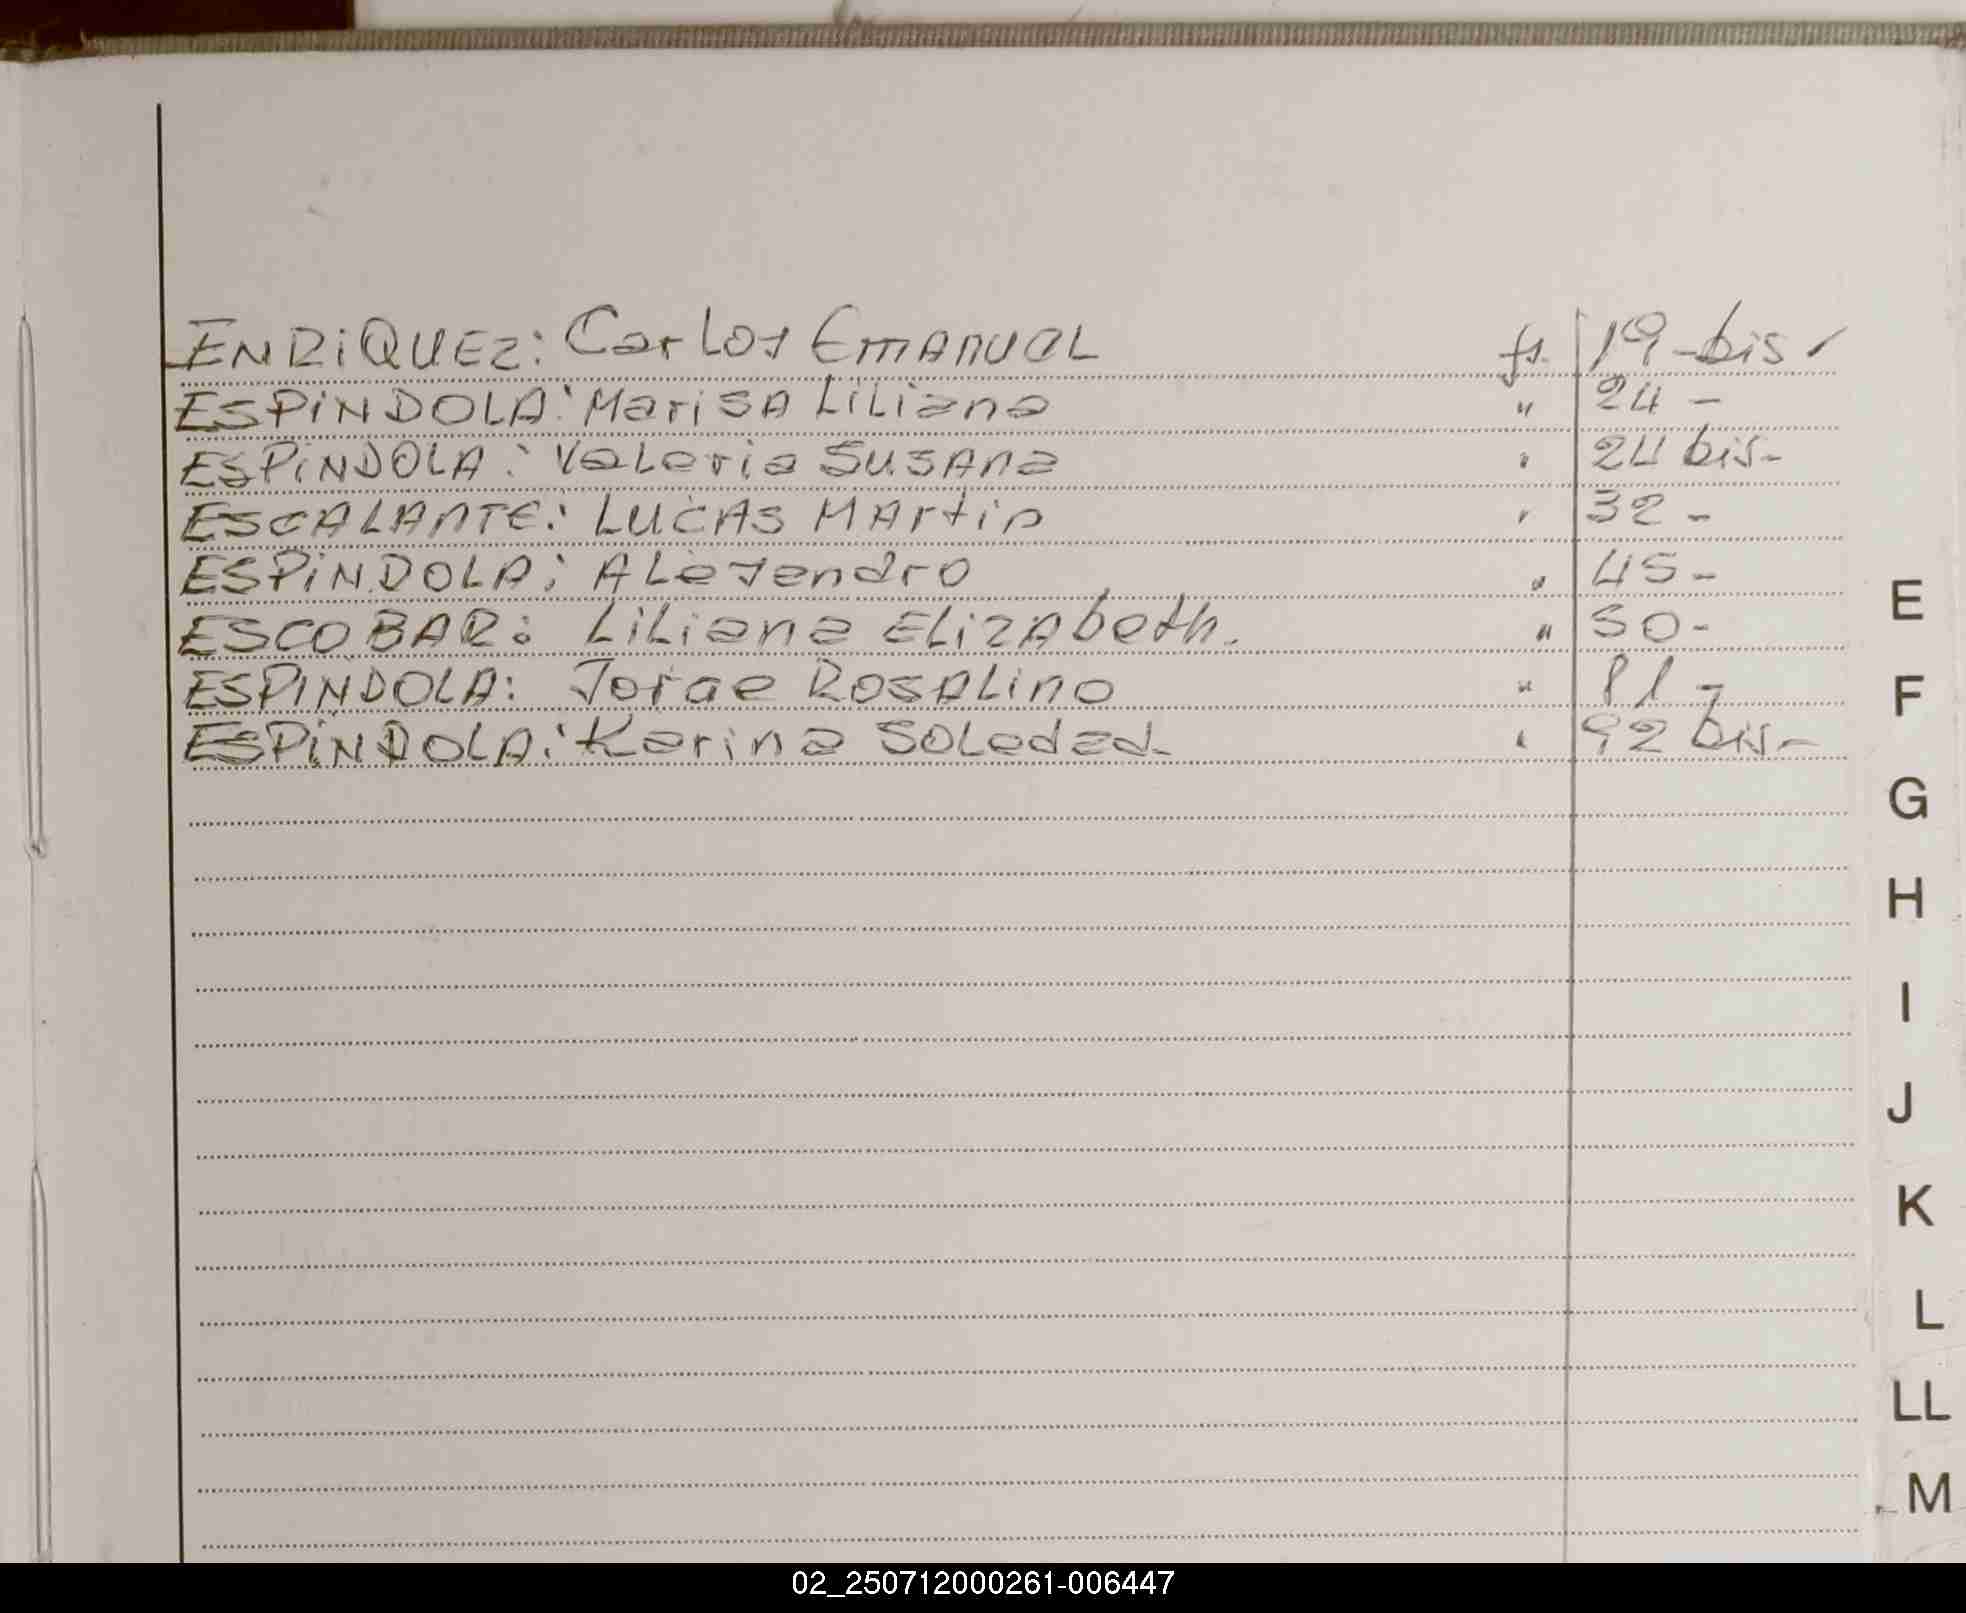 ENRIQUEZ: Carlos EMANUEL fs. 19-bis
ESPINDOLA: Marisa Liliana " 24-
ESPINDOLA: Valeria Susana " 24 bis-
ESCALANTE: Lucas Martin " 32-
ESPINDOLA: Alejandro " 45-
ESCOBAR: Liliana Elizabeth. " 50-
ESPINDOLA: Jorge Rosalino " 81-
ESPINDOLA: Karina Soledad- " 92 bis-
E
F
G
H
I
J
K
L
LL
M
02_250712000261-006447